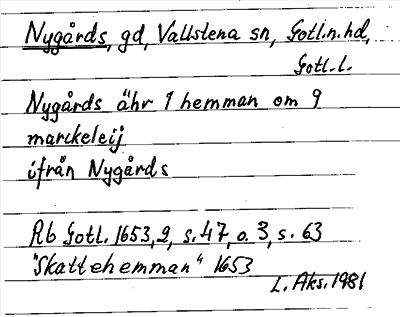 Nygårds, gd, Vallstena sn, Gotl.n.hd,
Gotl.l.
Nygårds ähr 1 hemman om 9
marckeleij
ifrån Nygårds
Rb Gotl. 1653,2, s.47, o. 3, s. 63
"Skattehemman" 1653
L. Aks. 1981